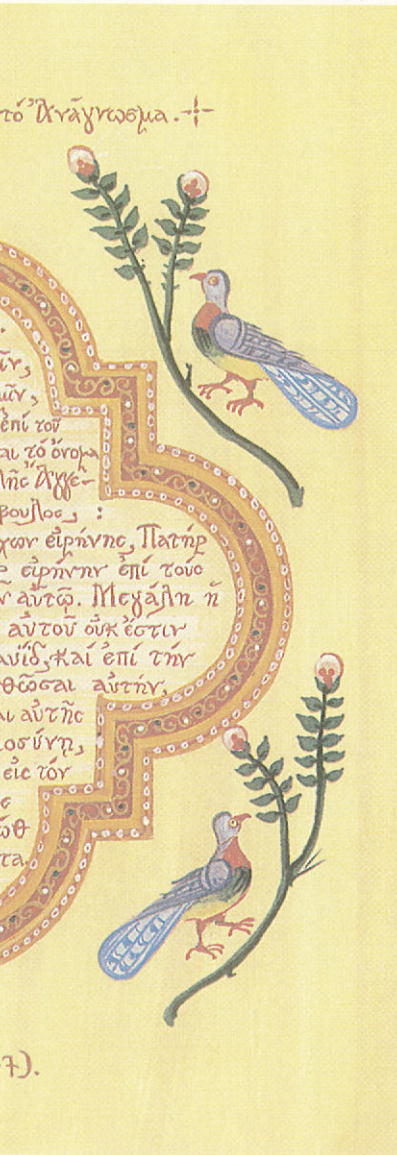 τό Ἀνάγνωσμα.
ῖν,
μῖν,
ἐπί τοῦ
αι τό ὄνομα
λης Ἀγγε-
βουλος, :
χων εἰρήνης, Πατήρ
εἰρήνην ἐπί τούς
αὐτῷ. Μεγάλη ἡ
αὐτοῦ οὐκ ἔστιν
αυίδ, καί ἐπί τήν
θῶσαι αὐτήν,
αι αὐτῆς
ιοσύνῃ,
εἰς τόν
ς
ώθ
τα.
7).